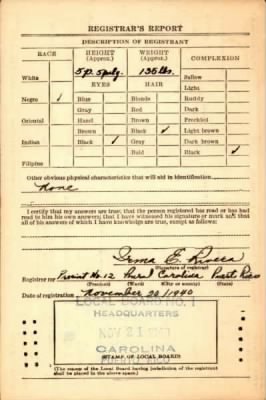 REGISTRAR'S REPORT
DESCRIPTION OF REGISTRANT
RACE HEIGHT (Approx.) WEIGHT (Approx.) COMPLEXION
White 5p. 5pulg. 135 lbs. Sallow
EYES HAIR Light
Negro ✓ Blue Blonde Ruddy
Gray Red Dark
Oriental Hazel Brown Freckled
Brown Black ✓ Light brown
Indian Black ✓ Gray Dark brown
Bald Black ✓
Filipino
Other obvious physical characteristics that will aid in identification
None
I certify that my answers are true; that the person registered has read or has had
read to him his own answers; that I have witnessed his signature or mark and that
all of his answers of which I have knowledge are true, except as follows:
Irma E. Rivera
(Signature of registrar)
Registrar for Precint No. 12 Rural Carolina Puerto Rico
Date of registration November 20 / 1940
LOCAL BOARD NO. 1
HEADQUARTERS
NOV 21
CAROLINA
PUERTO RICO
(STAMP OF LOCAL BOARD)
(The stamp of the Local Board having jurisdiction of the registrant
shall be placed in the above space.)